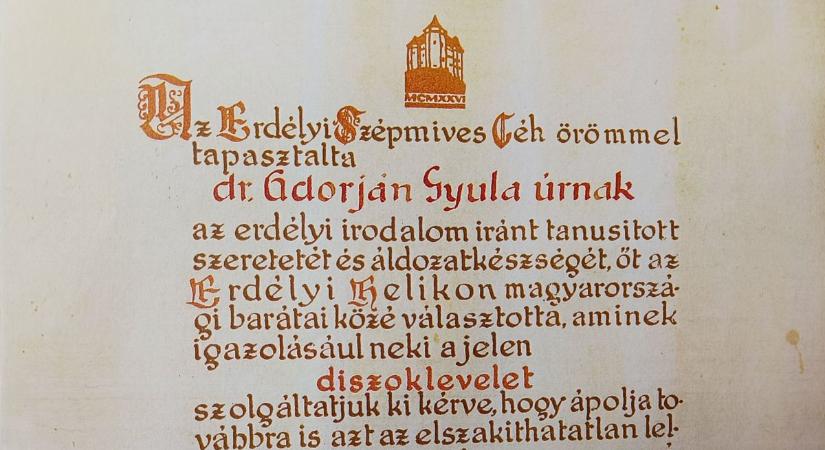 MCMXXVI
Az Erdélyi Szépmives Céh örömmel
tapasztalta
dr. Adorján Gyula úrnak
az erdélyi irodalom iránt tanusitott
szeretetét és áldozatkészségét, őt az
Erdélyi Helikon magyarorszá-
gi barátai közé választotta, aminek
igazolásául neki a jelen
diszoklevelet
szolgáltatjuk ki kérve, hogy ápolja to-
vábbra is azt az elszakithatatlan lel-